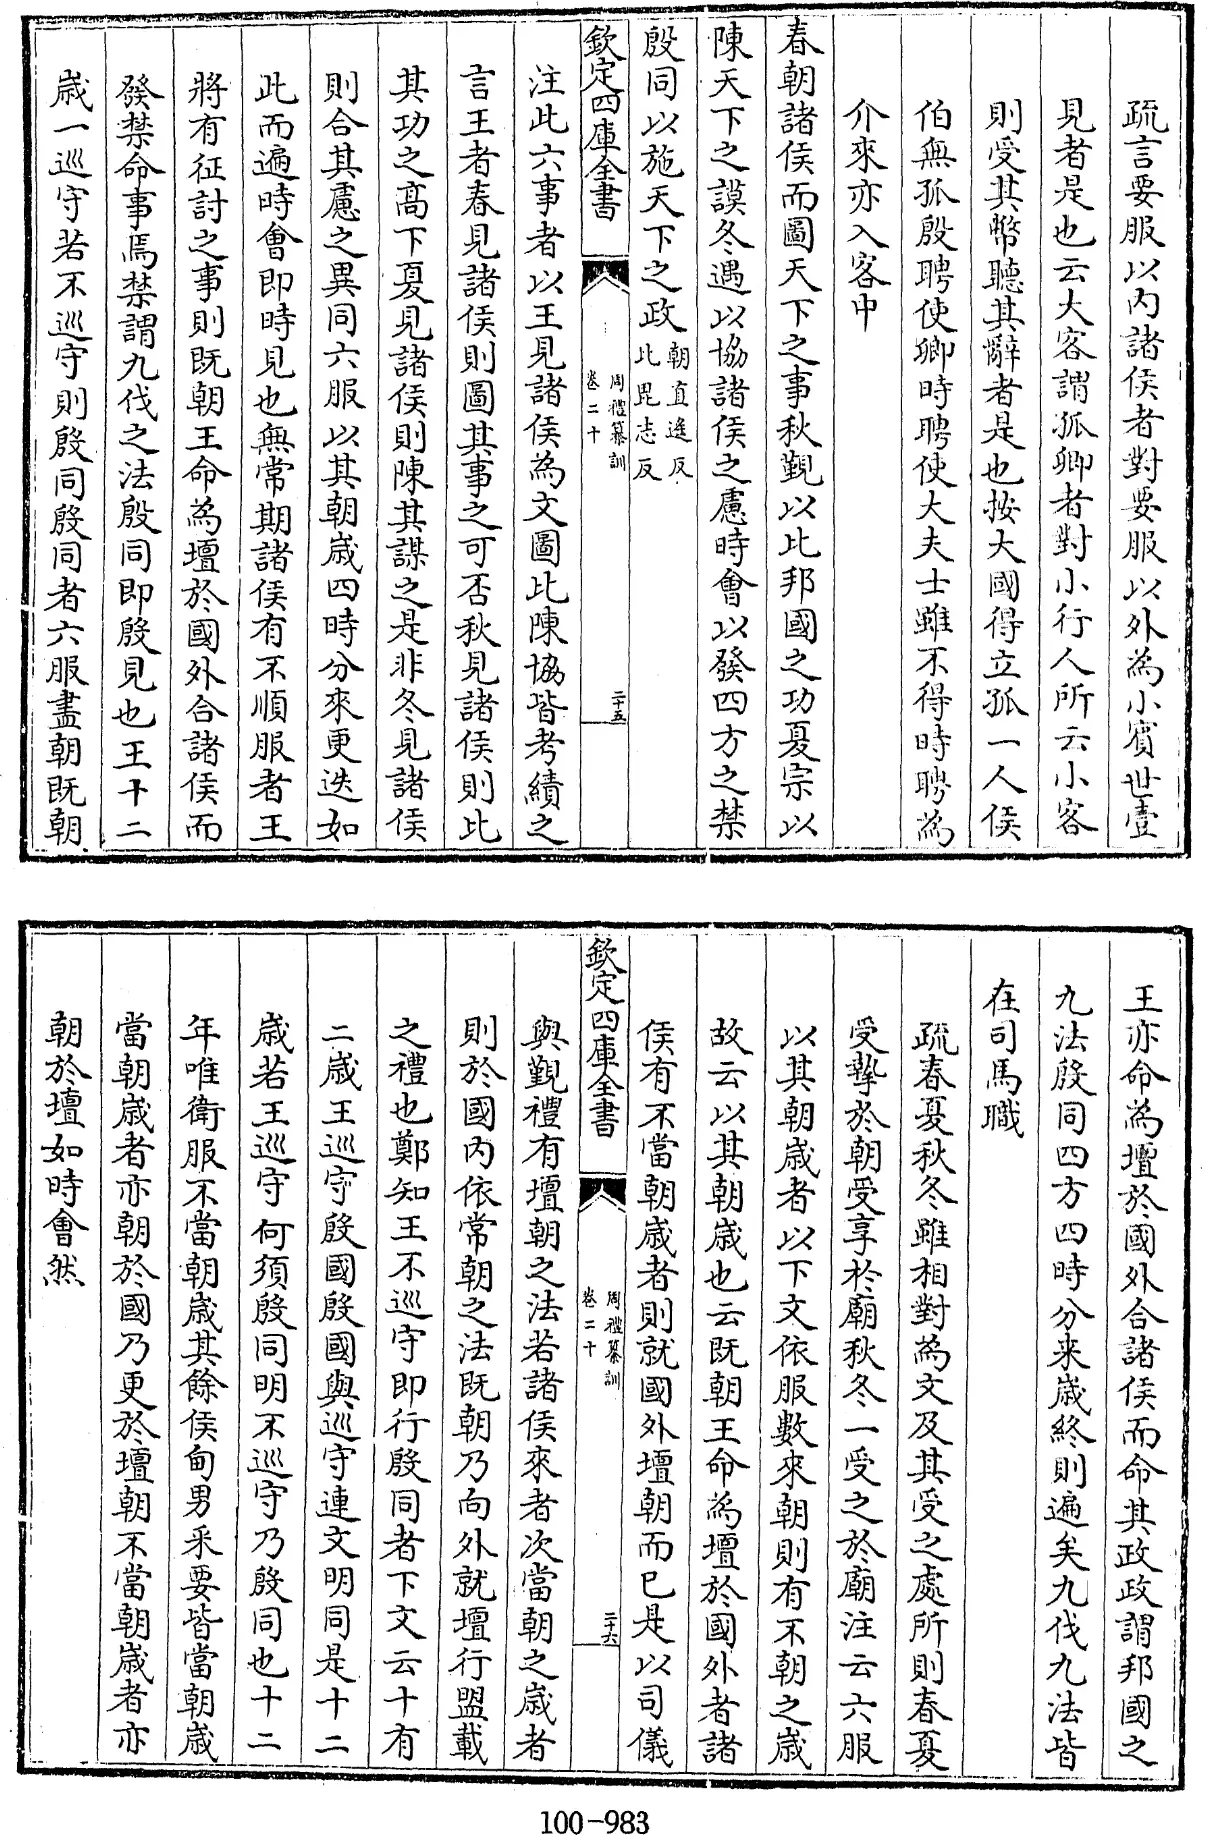 疏言要服以内諸侯者對要服以外為小賓世壹
見者是也云大客謂孤卿者對小行人所云小客
則受其幣聽其辭者是也按大國得立孤一人侯
伯無孤殷聘使卿時聘使大夫士雖不得時聘為
介來亦入客中
春朝諸侯而圖天下之事秋覲以比邦國之功夏宗以
陳天下之謨冬遇以協諸侯之慮時會以發四方之禁
殷同以施天下之政朝直遥反
比毘志反
欽定四庫全書
周禮纂訓
卷二十
二十五
注此六事者以王見諸侯為文圖比陳協皆考績之
言王者春見諸侯則圖其事之可否秋見諸侯則比
其功之高下夏見諸侯則陳其謀之是非冬見諸侯
則合其慮之異同六服以其朝歲四時分來更迭如
此而遍時會即時見也無常期諸侯有不順服者王
將有征討之事則既朝王命為壇於國外合諸侯而
發禁命事焉禁謂九伐之法殷同即殷見也王十二
歲一巡守若不巡守則殷同殷同者六服盡朝既朝
王亦命為壇於國外合諸侯而命其政政謂邦國之
九法殷同四方四時分来歲終則遍矣九伐九法皆
在司馬職
疏春夏秋冬雖相對為文及其受之處所則春夏
受摯於朝受享於廟秋冬一受之於廟注云六服
以其朝歲者以下文依服數來朝則有不朝之歲
故云以其朝歲也云既朝王命為壇於國外者諸
侯有不當朝歲者則就國外壇朝而已是以司儀
欽定四庫全書
周禮纂訓
卷二十
二十六
與覲禮有壇朝之法若諸侯來者次當朝之歲者
則於國内依常朝之法既朝乃向外就壇行盟載
之禮也鄭知王不巡守即行殷同者下文云十有
二歲王巡守殷國殷國與巡守連文明同是十二
歲若王巡守何須殷同明不巡守乃殷同也十二
年唯衛服不當朝歲其餘侯甸男采要皆當朝歲
當朝歲者亦朝於國乃更於壇朝不當朝歲者亦
朝於壇如時會然
100-983